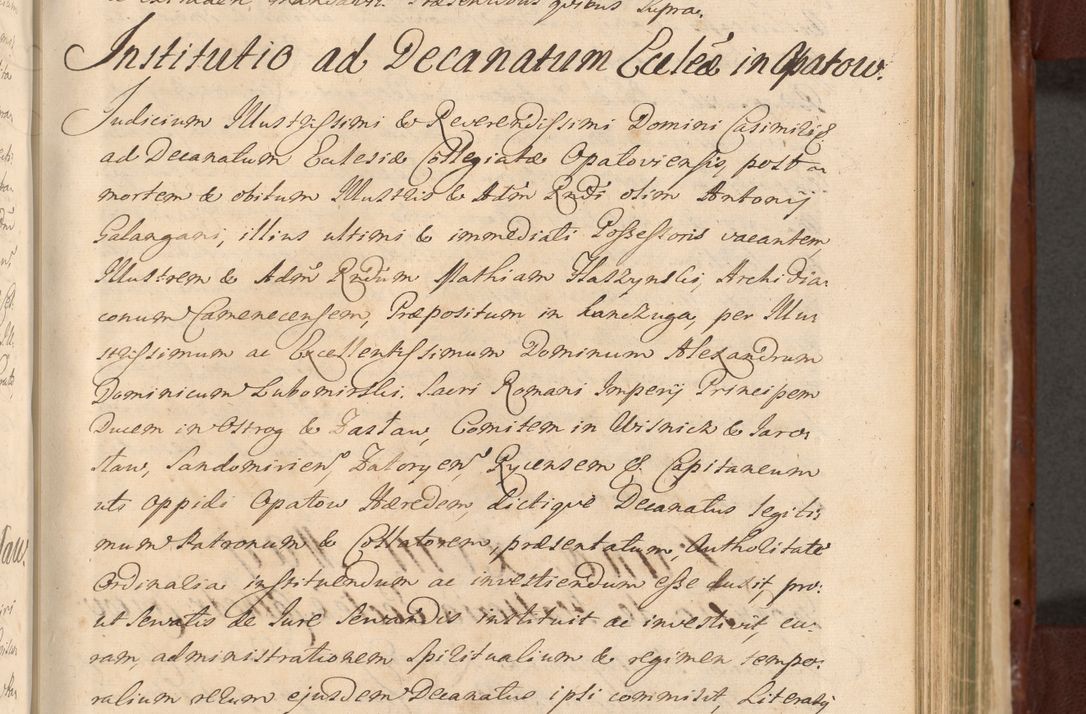 Institutio ad Decanatum Eccleæ in Opatow.
Judicium Illustrissimi & Reverendissimi Domini Casimiri &
ad Decanatum Eclesiæ Collegiatæ Opatoviensis, post
mortem & obitum Illustris & Adm Rndi olim Antonij
Galangani, illius ultimi & immediati Possessoris vacantem
Illustrem & Adm Rndum Mathiam Haszynski, Archidia-
conum Camenecensem, Præpositum in Kanczuga, per Illu-
strissimum ac Excellentissimum Dominum Alexandrum
Dominicum Lubomirski. Sacri Romani Imperij Principem
Ducem in Ostrog & Zasław, Comitem in Wisnicz & Jaro-
sław, Sandomiriens Zatoryens Rycensem &. Capitaneum
uti oppidi Opatow Hæredem, dictique Decanatus legiti-
mum Patronum & Collatorem, præsentatum, Authoritate
Ordinaria instituendum ac investiendum esse duxit, pro-
ut servatis de Jure servandis instituit ac investivit cu-
ram, administrationem Spiritualium & regimen tempo-
ralium rerum ejusdem Decanatus ipsi commisit, Literasq